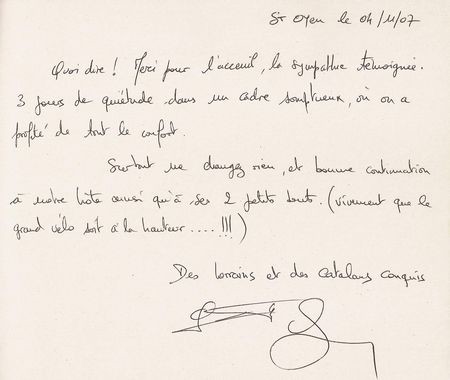 St Oyen le 04/11/07
Quoi dire ! Merci pour l'acceuil, la sympathie témoignée.
3 jours de quiétude dans un cadre somptueux, où on a
profité de tout le confort.
Surtout ne changez rien, et bonne continuation
à notre hôte ainsi qu'à ses 2 petits bouts. (vivement que le
grand vélo soit à la hauteur .... !!!)
Des lorrains et des Catalans conquis